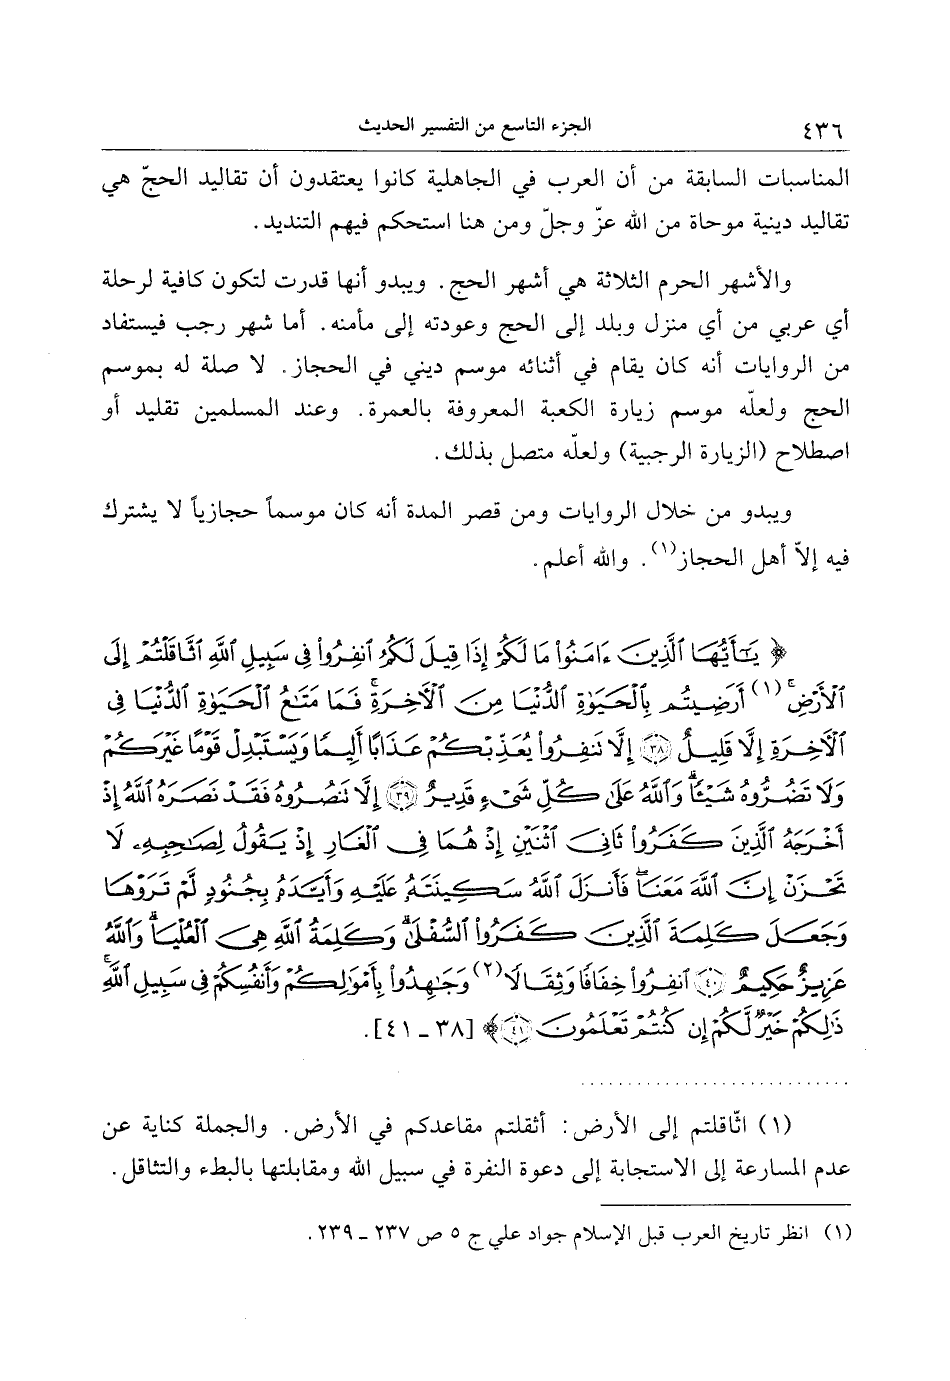 ٤٣٦ الجزء التاسع من التفسير الحديث
المناسبات السابقة من أن العرب في الجاهلية كانوا يعتقدون أن تقاليد الحجّ هي
تقاليد دينية موحاة من الله عزّ وجلّ ومن هنا استحكم فيهم التنديد.
والأشهر الحرم الثلاثة هي أشهر الحج. ويبدو أنها قدرت لتكون كافية لرحلة
أي عربي من أي منزل وبلد إلى الحج وعودته إلى مأمنه. أما شهر رجب فيستفاد
من الروايات أنه كان يقام في أثنائه موسم ديني في الحجاز. لا صلة له بموسم
الحج ولعلّه موسم زيارة الكعبة المعروفة بالعمرة. وعند المسلمين تقليد أو
اصطلاح (الزيارة الرجبية) ولعلّه متصل بذلك.
ويبدو من خلال الروايات ومن قصر المدة أنه كان موسماً حجازياً لا يشترك
فيه إلاّ أهل الحجاز(١). والله أعلم.
﴿ يَٰٓأَيُّهَا ٱلَّذِينَ ءَامَنُوا۟ مَا لَكُمْ إِذَا قِيلَ لَكُمُ ٱنفِرُوا۟ فِى سَبِيلِ ٱللَّهِ ٱثَّاقَلْتُمْ إِلَى
ٱلْأَرْضِ ۚ (١) أَرَضِيتُم بِٱلْحَيَوٰةِ ٱلدُّنْيَا مِنَ ٱلْأَخِرَةِ ۚ فَمَا مَتَٰعُ ٱلْحَيَوٰةِ ٱلدُّنْيَا فِى
ٱلْأَخِرَةِ إِلَّا قَلِيلٌ ٣٨ إِلَّا تَنفِرُوا۟ يُعَذِّبْكُمْ عَذَابًا أَلِيمًا وَيَسْتَبْدِلْ قَوْمًا غَيْرَكُمْ
وَلَا تَضُرُّوهُ شَيْـًٔا ۗ وَٱللَّهُ عَلَىٰ كُلِّ شَىْءٍ قَدِيرٌ ٣٩ إِلَّا تَنصُرُوهُ فَقَدْ نَصَرَهُ ٱللَّهُ إِذْ
أَخْرَجَهُ ٱلَّذِينَ كَفَرُوا۟ ثَانِىَ ٱثْنَيْنِ إِذْ هُمَا فِى ٱلْغَارِ إِذْ يَقُولُ لِصَٰحِبِهِۦ لَا
تَحْزَنْ إِنَّ ٱللَّهَ مَعَنَا ۖ فَأَنزَلَ ٱللَّهُ سَكِينَتَهُۥ عَلَيْهِ وَأَيَّدَهُۥ بِجُنُودٍ لَّمْ تَرَوْهَا
وَجَعَلَ كَلِمَةَ ٱلَّذِينَ كَفَرُوا۟ ٱلسُّفْلَىٰ ۗ وَكَلِمَةُ ٱللَّهِ هِىَ ٱلْعُلْيَا ۗ وَٱللَّهُ
عَزِيزٌ حَكِيمٌ ٤٠ ٱنفِرُوا۟ خِفَافًا وَثِقَالًا (٢) وَجَٰهِدُوا۟ بِأَمْوَٰلِكُمْ وَأَنفُسِكُمْ فِى سَبِيلِ ٱللَّهِ ۚ
ذَٰلِكُمْ خَيْرٌ لَّكُمْ إِن كُنتُمْ تَعْلَمُونَ ٤١ ﴾ [٣٨ ـ ٤١].
(١) اثّاقلتم إلى الأرض: أثقلتم مقاعدكم في الأرض. والجملة كناية عن
عدم المسارعة إلى الاستجابة إلى دعوة النفرة في سبيل الله ومقابلتها بالبطء والتثاقل.
(١) انظر تاريخ العرب قبل الإسلام جواد علي ج ٥ ص ٢٣٧ ـ ٢٣٩.